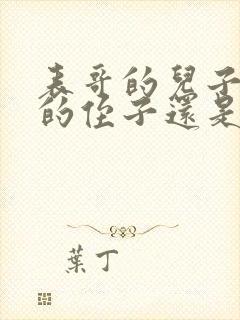 表哥的兒子
的侄子還是
葉丁